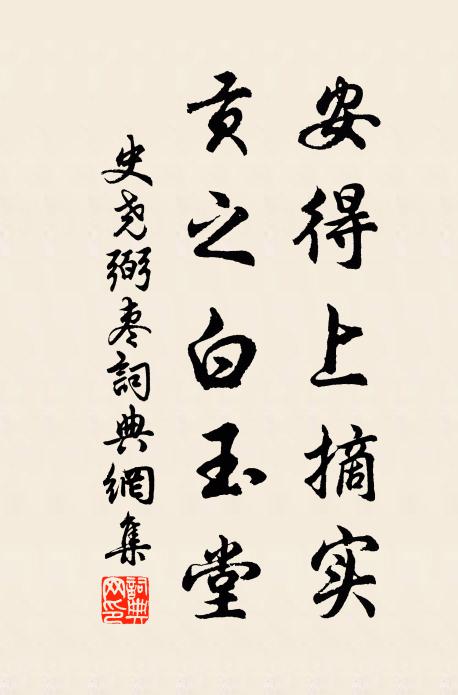 安得上摘实
贡之白玉堂
史尧弼枣詞典網集
詞典网印